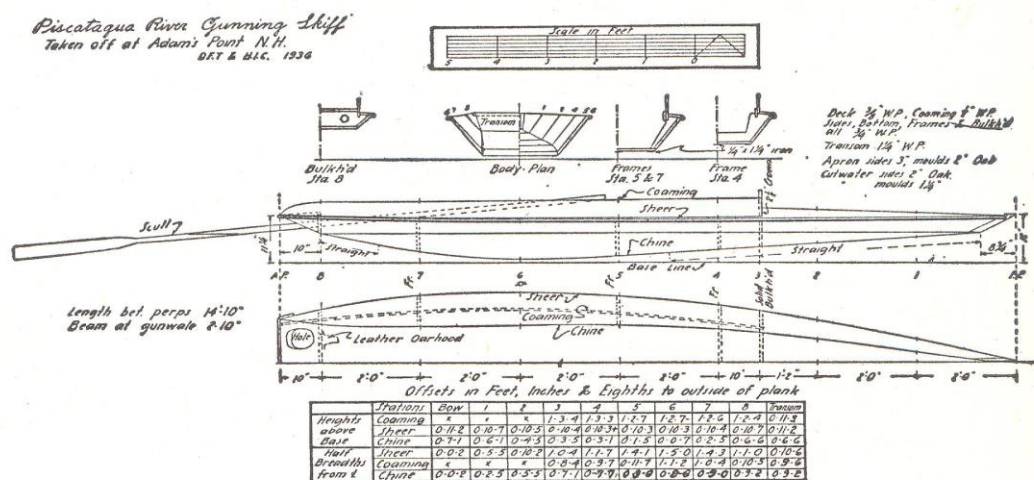 Piscataqua River Gunning Skiff
Taken off at Adam's Point N.H.
D.F.T & H.I.C. 1936
Scale in Feet
5 4 3 2 1 0
Transom
Bulkh'd
Sta. 8
Body-Plan
Frames
Sta. 5 & 7
Frame
Sta. 4
¼" x 1¼" iron
Deck ⅜" W.P. Coaming W.P.
Sides, Bottom, Frames & Bulkh'd
all ¾" W.P.
Transom 1¼" W.P.
Apron sides 3", moulds 2" Oak
Cutwater sides 2" Oak
" moulds 1½"
Coaming
Crown
Sheer
Scull
Chine
Straight
Straight
Base Line
10"
8¾"
A.P. 8 7 6 5 4 3 2 1
Fr. Fr. Fr.
Solid Bulkh'd
Length bet. perps 14'-10"
Beam at gunwale 2-10"
Sheer
Coaming
Chine
Hole
Leather Oarhood
10" 2'-0" 2'-0" 2'-0" 2'-0" 10" 1'-2" 2'-0" 2'-0"
Offsets in Feet, Inches & Eighths to outside of plank
Stations Bow 1 2 3 4 5 6 7 8 Transom
Heights above Base
Coaming x x x 1-3-4 1-3-3 1-2-7 1-2-7 1-2-6 1-2-4 0-11-3
Sheer 0-11-2 0-10-7 0-10-5 0-10-4 0-10-3+ 0-10-3 0-10-3 0-10-4 0-10-7 0-11-2
Chine 0-7-1 0-6-1 0-4-5 0-3-5 0-3-1 0-1-5 0-0-7 0-2-5 0-6-6 0-6-6
Half Breadths from ℄
Sheer 0-0-2 0-5-5 0-10-2 1-0-4 1-1-7 1-4-1 1-5-0 1-4-3 1-1-0 0-10-6
Coaming x x x 0-8-4 0-9-7 0-11-7 1-1-2 1-0-4 0-10-5 0-9-6
Chine 0-0-2 0-2-5 0-5-5 0-7-1 0-7-7 0-9-0 0-9-2 0-9-2